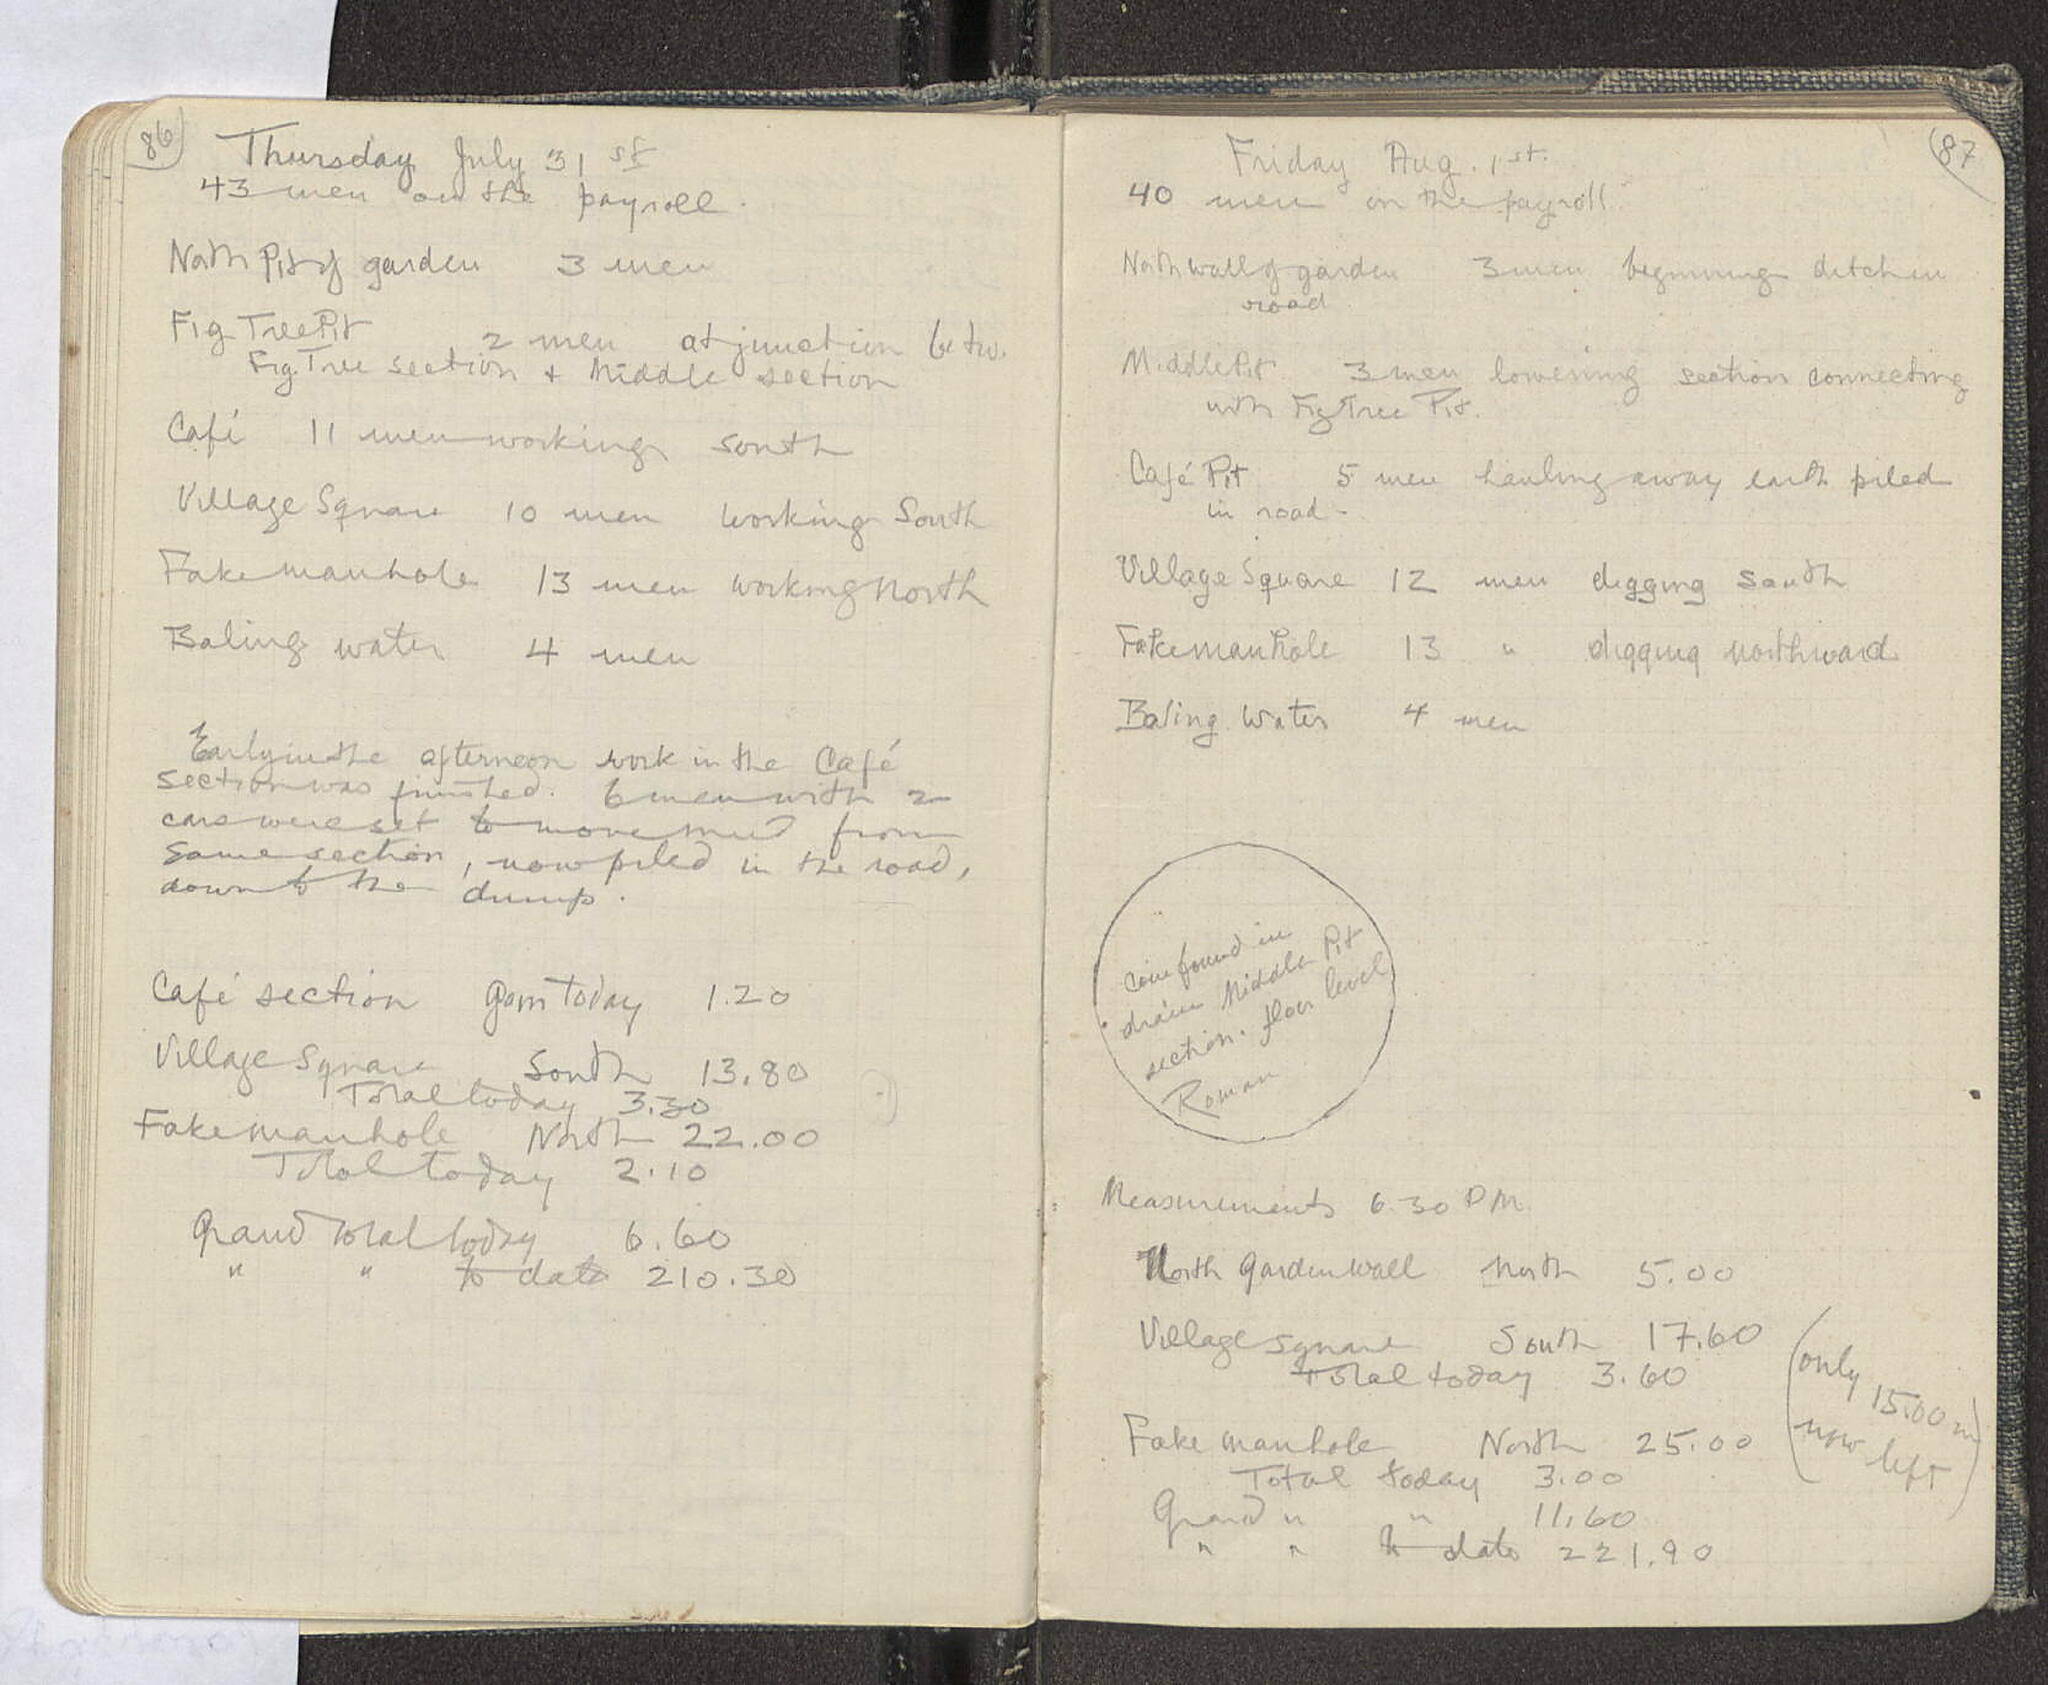 86
Thursday July 31st
43 men on the payroll.
North Pit of garden 3 men
Fig Tree Pit 2 men at junction betw.
Fig Tree section + Middle section
Café 11 men working south
Village Square 10 men working South
Fake manhole 13 men working North
Baling water 4 men
Early in the afternoon work in the Café
section was finished. 6 men with 2
cars were set to move mud from
same section, now piled in the road,
down to the dump.
Café section Gain today 1.20
Village Square South 13.80
Total today 3.30
Fake manhole North 22.00
Total today 2.10
Grand total today 6.60
" " to date 210.30
87
Friday Aug. 1st.
40 men on the payroll
North wall of garden 3 men beginning ditch in
road
Middle Pit 3 men lowering section connecting
with Fig Tree Pit.
Café Pit 5 men hauling away earth piled
in road -
Village Square 12 men digging South
Fake manhole 13 " digging northward
Baling Water 4 men
coin found in
drain Middle Pit
section. floor level
Roman
Measurements 6.30 PM
North Garden Wall North 5.00
Village square South 17.60
Total today 3.60
(only
15.00 m
now left)
Fake manhole North 25.00
Total today 3.00
Grand " " 11.60
" " to date 221.90